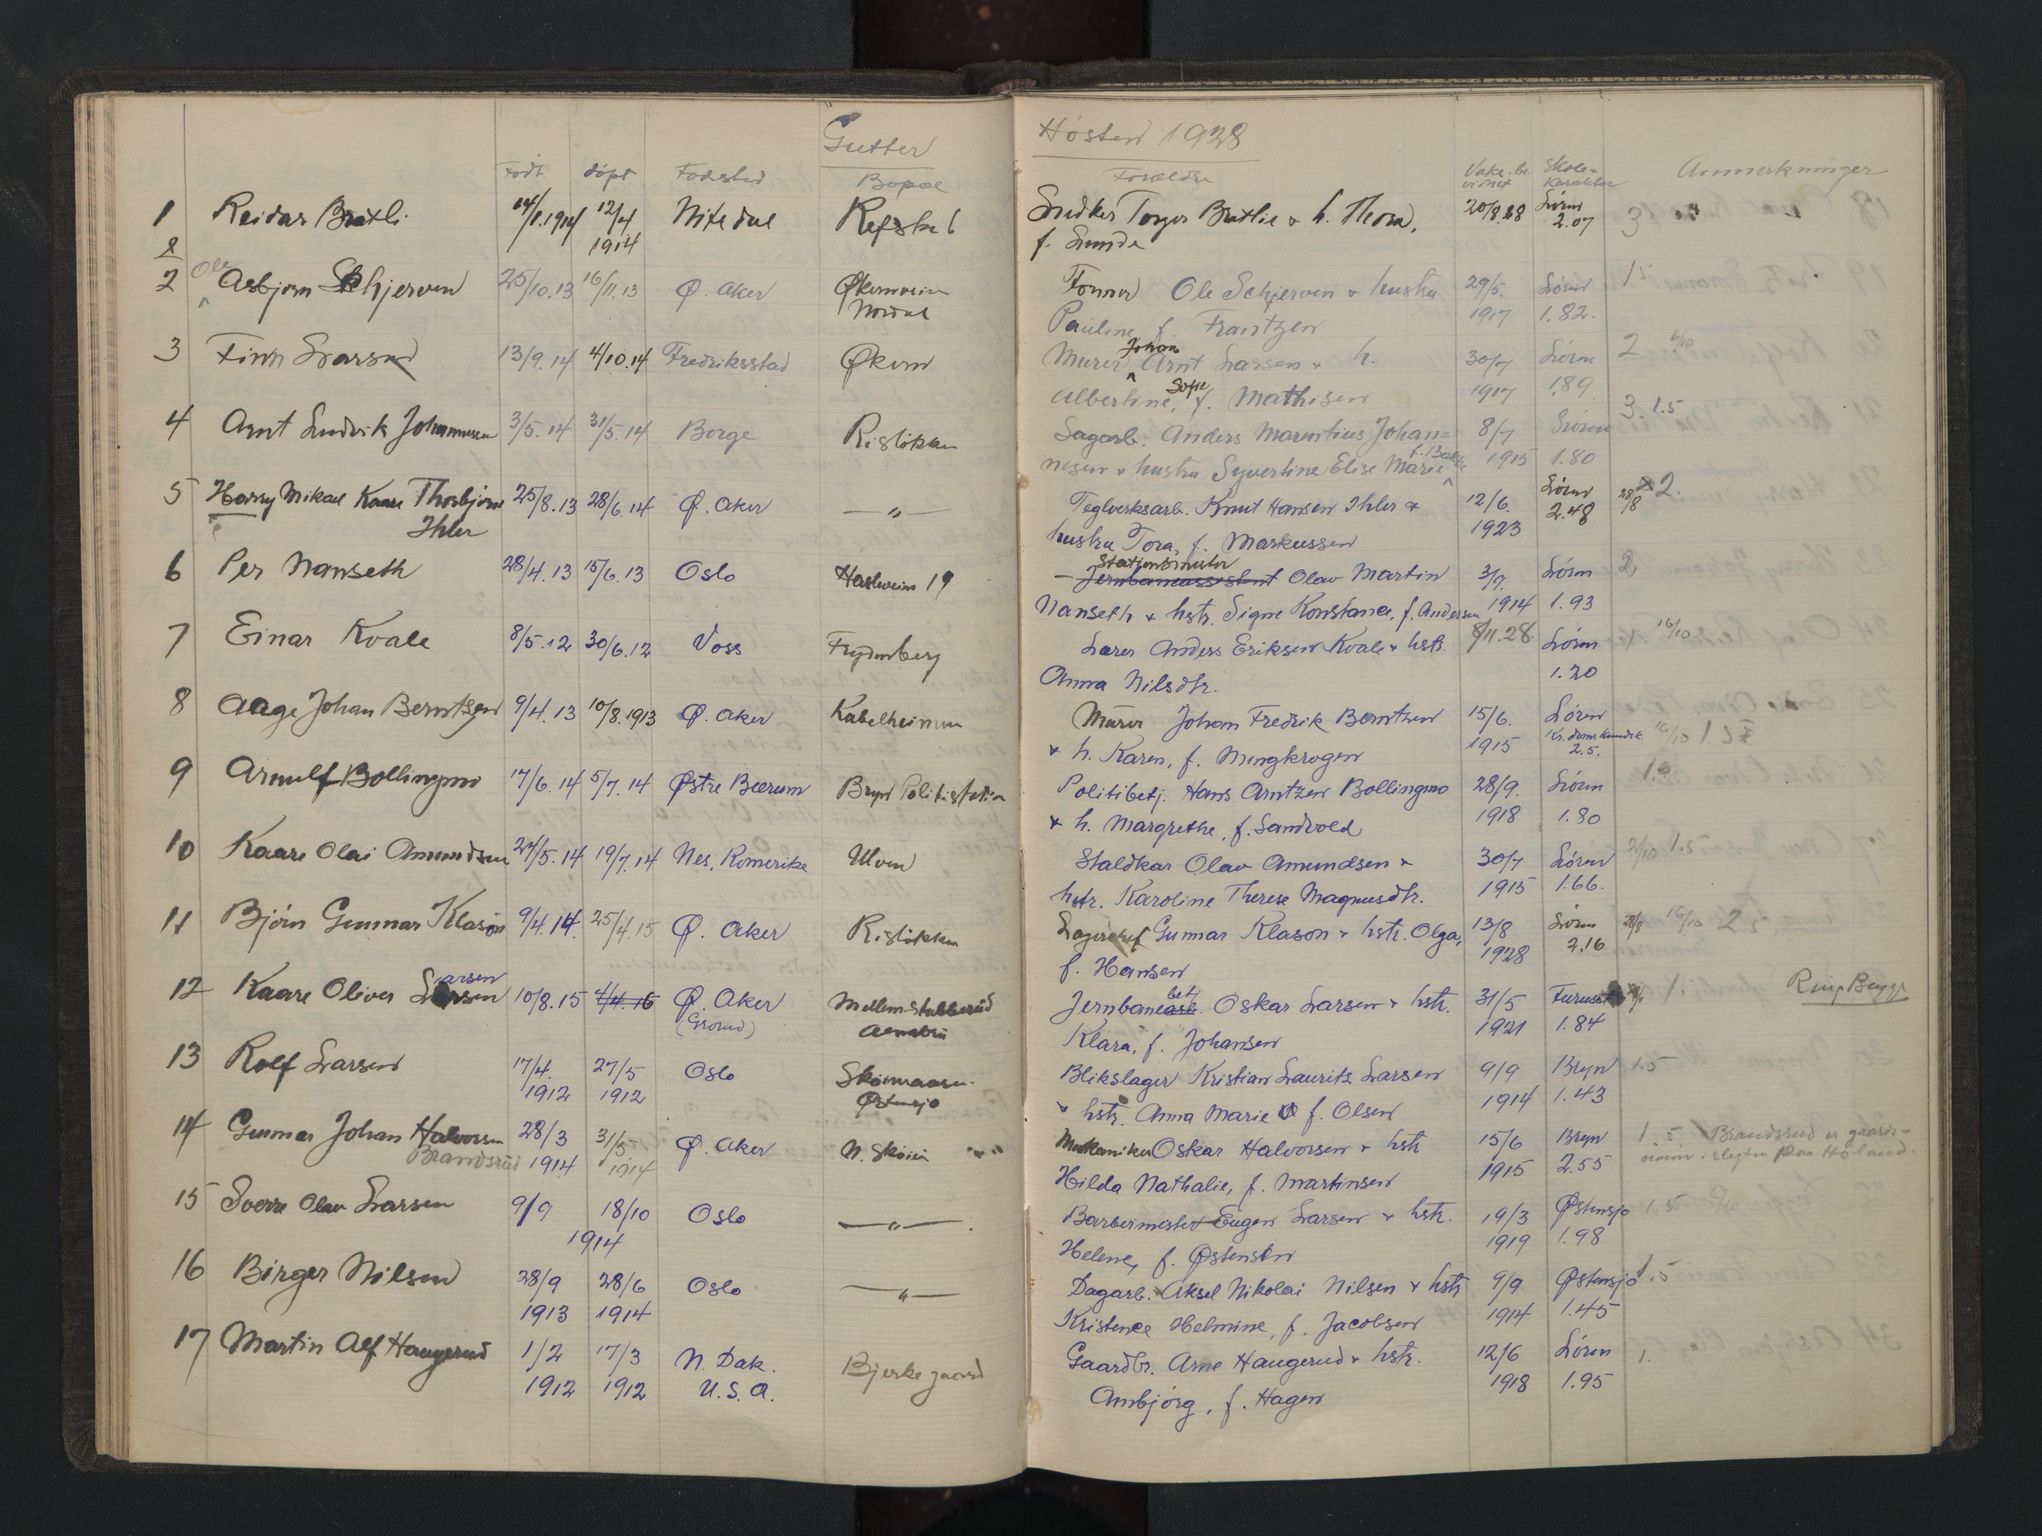 Gutter
Født døpt Fødested Bopæl
1 Reidar Bratli 14/1.1914 12/4 1914 Nitedal Refstad
2 Ole Asbjørn Skhjerven 25/10.13 16/11.13 Ø. Aker Økernveien
Nordal
3 Finn Larsen 13/9.14 4/10.14 Fredriksstad Økern
4 Arnt Ludvik Johannessen 3/5.14 31/5.14 Borge Risløkken
5 Harry Mikael Kaare Thorbjørn 25/8.13 28/6.14 Ø. Aker — " —
Ihler
6 Per Nanseth 28/4.13 15/6.13 Oslo Hasleveien 19
7 Einar Kvale 8/5.12 30/6.12 Voss Frydenberg
8 Aage Johan Berntzen 9/4.13 10/8.1913 Ø. Aker Kabelheimen
9 Arnulf Bollingmo 17/6.14 5/7.14 Østre Bærum Bryn Politistation
10 Kaare Olai Amundsen 27/5.14 19/7.14 Nes, Romerike Ulven
11 Bjørn Gunnar Klasøn 9/4.14. 25/4.15 Ø. Aker Risløkken
12 Kaare Oliver Larsen 10/8.15 4/4.16 Ø. Aker Mellem-Stubberud
(Grorud) Alnabru
13 Rolf Larsen 17/4. 27/5 Oslo Skøienaasen.
1912 1912 Østensjø
14 Gunnar Johan Halvorsen 28/3 31/5 Ø. Aker N. Skøien
Brandsrud 1914 1914
15 Sverre Olav Larsen 9/9 18/10 Oslo — " — .
1914
16 Birger Nilsen 28/9 28/6 Oslo — " —
1913 1914
17 Martin Alf Haugerud 1/2 17/3 N. Dak. Bjerke gaard
1912 1912 U.S.A.
Høsten 1928
Forældre Vaks. br. vidnet Skole-karakter Anmerkninger
Snedker Torger Bratlie & h. Thora, 20/8.28 Løren 3
f. Lunde 2.07
Former Ole Schjerven & hustru 29/5. Løren 1.5
Pauline, f. Frantzen 1917 1.82.
Murer Johan Arnt Larsen & h. 30/7 Løren 2 6/10
Albertine, Sofie f. Mathisen 1917 1.89
Sagarb. Anders Marentius Johan= 8/7 Løren 3. 1.5
nesen & hustru Syvertine Elise Marie f. Bakke 1915 1.80
Teglverksarb. Knut Hansen Ihler & 12/6. Løren 28/8 2.
hustru Tora, f. Markussen 1923 2.48
Stationsmester
Jernbaneassistent Olav Martin 3/9 Løren 2,
Nanseth & hstr. Signe Konstance, f. Andersen 1914 1.93
Lærer Anders Eriksen Kvale & hstr. 8/11.28. Løren 1. 16/10
Anna Nilsdtr. 1.20
Murer Johan Fredrik Berntzen 15/6. Løren
& h. Karen, f. Mungkrogen 1915 Kr.domskundsk. 2.5. 16/10
Politibetj. Hans Arntzen Bollingmo 28/9. Løren 1.
& h. Margrethe, f. Sandvold 1918 1.80
Staldkar Olav Amundsen & 30/7 Løren 1.5
hstr. Karoline Therese Magnusdtr. 1915 1.66.
Lagerchef Gunnar Klason & hstr. Olga, 13/8 Løren 28/8 16/10 2
f. Hansen 1928 2.16
Jernbanearb. bet. Oskar Larsen & hstr. 31/5 Furuset
Klara, f. Johansen 1921 1.84
Blikslager Kristian Lauritz Larsen 9/9 Bryn 1.5
& hstr. Anna Marie f. Olsen 1914 1.43
Mekaniker Oskar Halvorsen & hstr 15/6 Bryn 1.5 Brandsrud er gaards-
Hilda Nathalie, f. Martinsen 1915 2.55 navn i slegten paa Høland.
Barbermester Eugen Larsen & hstr. 19/3 Østensjø 1.5
Helene, f. Østensen 1919 1.98
Dagarb. Aksel Nikolai Nilsen & hstr 9/9 Østensjø 1.5
Kristence Helmine, f. Jacobsen 1914 1.45
Gaardbr. Arne Haugerud & hstr. 12/6 Løren 1.
Ambjørg, f. Hagen 1918 1.95